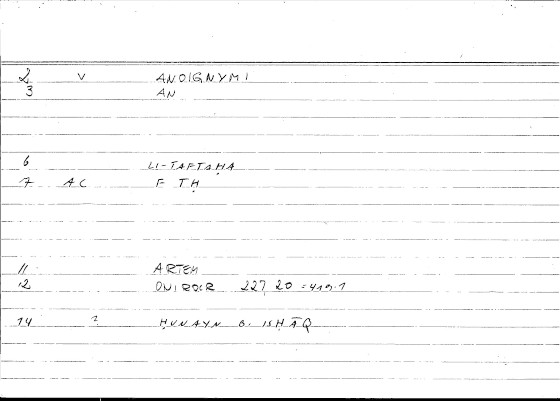 2 V ANOIGNYMI
3 AN
6 LI-TAFTAḤA
7 AC F TḤ
11 ARTEM
12 ONIROCR 227, 20 = 419.1
14 ? ḤUNAYN B. ISḤĀQ